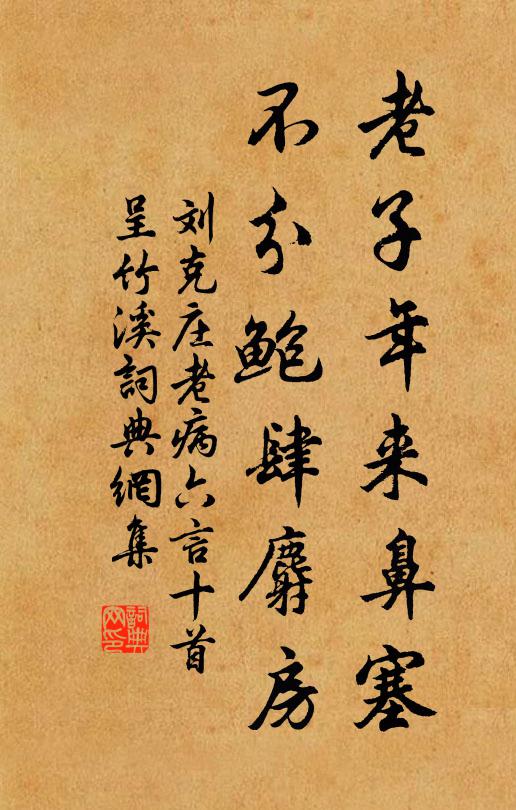 老子年来鼻塞
不分鲍肆麝房
刘克庄老病六言十首
呈竹溪詞典網集
詞典網印